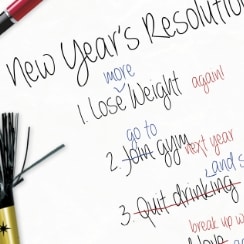 New Year's Resolution
more
1. Lose Weight again!
go to
2. Join gym next year
and s
3. Quit drinking
break up w
love